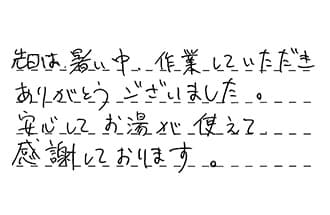 先日は暑い中、作業していただき
ありがとうございました。
安心してお湯が使えて
感謝しております。